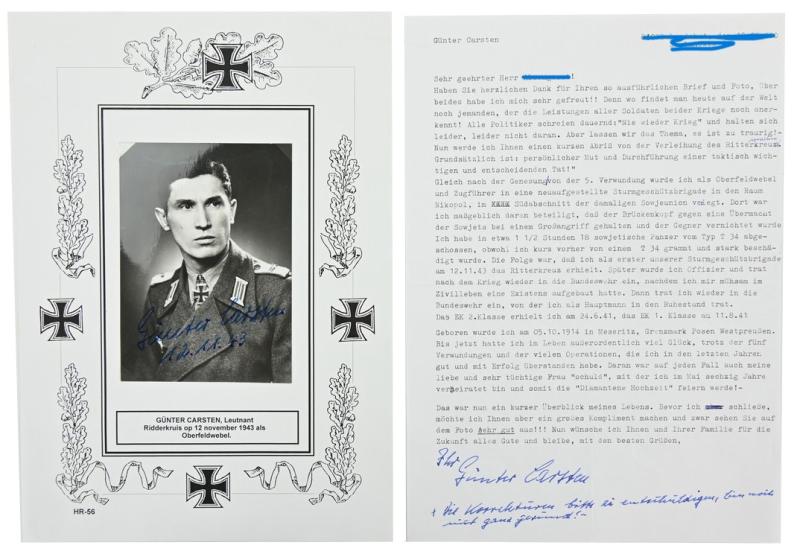 Günter Carsten
12.11.43
GÜNTER CARSTEN, Leutnant
Ridderkruis op 12 november 1943 als
Oberfeldwebel.
HR-56
Günter Carsten
Sehr geehrter Herr !
Haben Sie herzlichen Dank für Ihren so ausführlichen Brief und Foto, Über
beides habe ich mich sehr gefreut!! Denn wo findet man heute auf der Welt
noch jemanden, der die Leistungen aller Soldaten beider Kriege noch aner-
kennt! Alle Politiker schreien dauernd:"Nie wieder Krieg" und halten sich
leider, leider nicht daran. Aber lassen wir das Thema, es ist zu traurig!-
Nun werde ich Ihnen einen kurzen Abriß von der Verleihung des Ritterkreuz
Grundsätzlich ist: persönlicher Mut und Durchführung einer taktisch wich-
tigen und entscheidenden Tat!"
Gleich nach der Genesung von der 5. Verwundung wurde ich als Oberfeldwebel
und Zugführer in eine neuaufgestellte Sturmgeschützbrigade in den Raum
Nikopol, im Südabschnitt der damaligen Sowjeunion verlegt. Dort war
ich maßgeblich daran beteiligt, daß der Brückenkopf gegen eine Übermacht
der Sowjets bei einem Großangriff gehalten und der Gegner vernichtet wurde
Ich habe in etwa 1 1/2 Stunden 18 sowjetische Panzer vom Typ T 34 abge-
schossen, obwohl ich kurz vorher von einem T 34 grammt und stark beschä-
digt wurde. Die Folge war, daß ich als erster unserer Sturmgeschützbrigade
am 12.11.43 das Ritterkreuz erhielt. Später wurde ich Offizier und trat
nach dem Krieg wieder in die Bundeswehr ein, nachdem ich mir mühsam im
Zivilleben eine Existens aufgebaut hatte. Dann trat ich wieder in die
Bundeswehr ein, von der ich als Hauptmann in den Ruhestand trat.
Das EK 2.Klasse erhielt ich am 24.6.41, das EK 1. Klasse am 11.8.41
Geboren wurde ich am 05.10.1914 in Meseritz, Grenzmark Posen Westpreußen.
Bis jetzt hatte ich im Leben außerordentlich viel Glück, trotz der fünf
Verwundungen und der vielen Operationen, die ich in den letzten Jahren
gut und mit Erfolg überstanden habe. Daran war auf jeden Fall auch meine
liebe und sehr tüchtige Frau "schuld", mit der ich im Mai sechzig Jahre
verheiratet bin und somit die "Diamantene Hochzeit" feiern werde!-
Das war nun ein kurzer Überblick meines Lebens. Bevor ich schließe,
möchte ich Ihnen aber ein großes Kompliment machen und zwar sehen Sie auf
dem Foto sehr gut aus!!! Nun wünsche ich Ihnen und Ihrer Familie für die
Zukunft alles Gute und bleibe, mit den besten Grüßen,
Ihr
Günter Carsten
+ Die Korrekturen bitte zu entschuldigen, bin noch
nicht ganz gesund!-